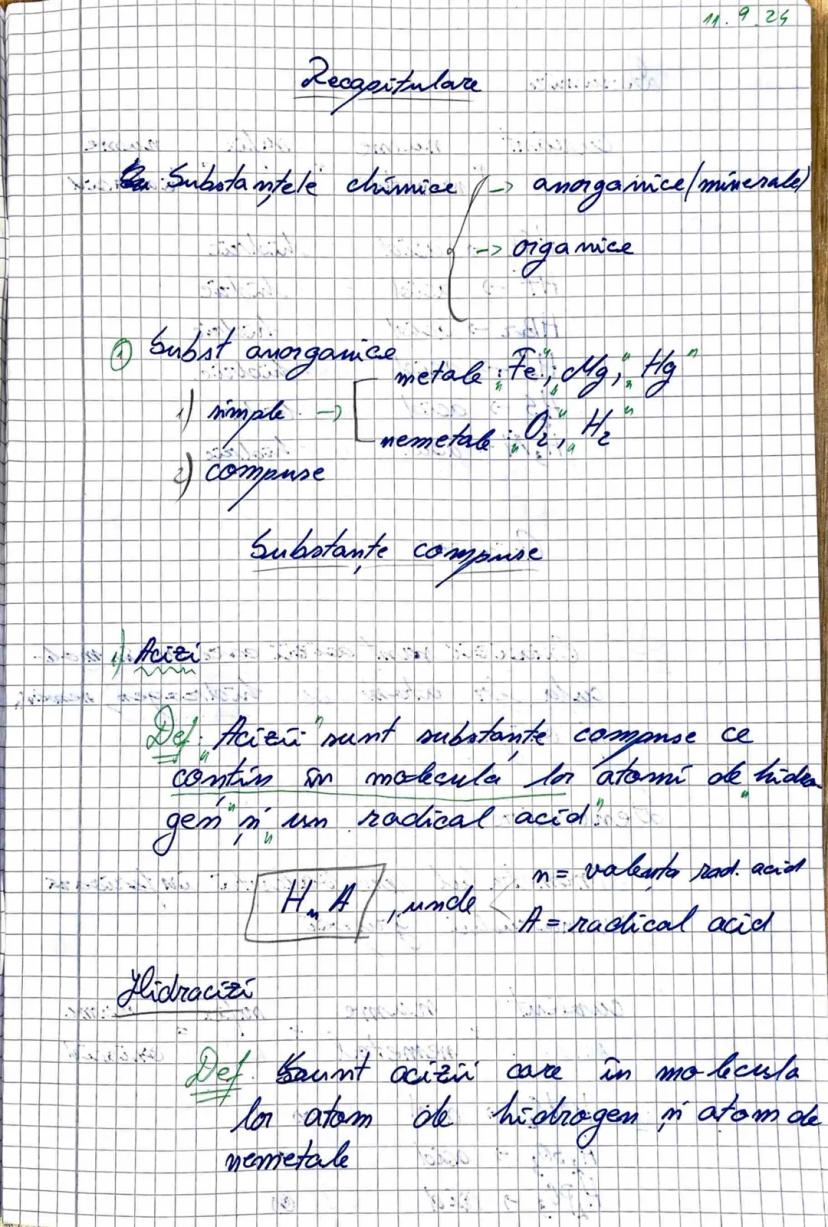 11.9.24
Recapitulare
Substanțele chimice → anorganice/minerale)
→ organice
① Subst anorganice
metale: Fe; Mg; Hg
1) simple →
nemetale: O₂; H₂
2) compuse
Substanțe compuse
1) Acizi
Def: "Acizii" sunt substanțe compuse ce
conțin în molecula lor "atomi de hidro-
gen" și "un radical acid".
HₙA, unde n = valența rad. acid
A = radical acid
Hidracizi
Def. Sunt acizii care în molecula
lor atom de hidrogen și atom de
nemetale